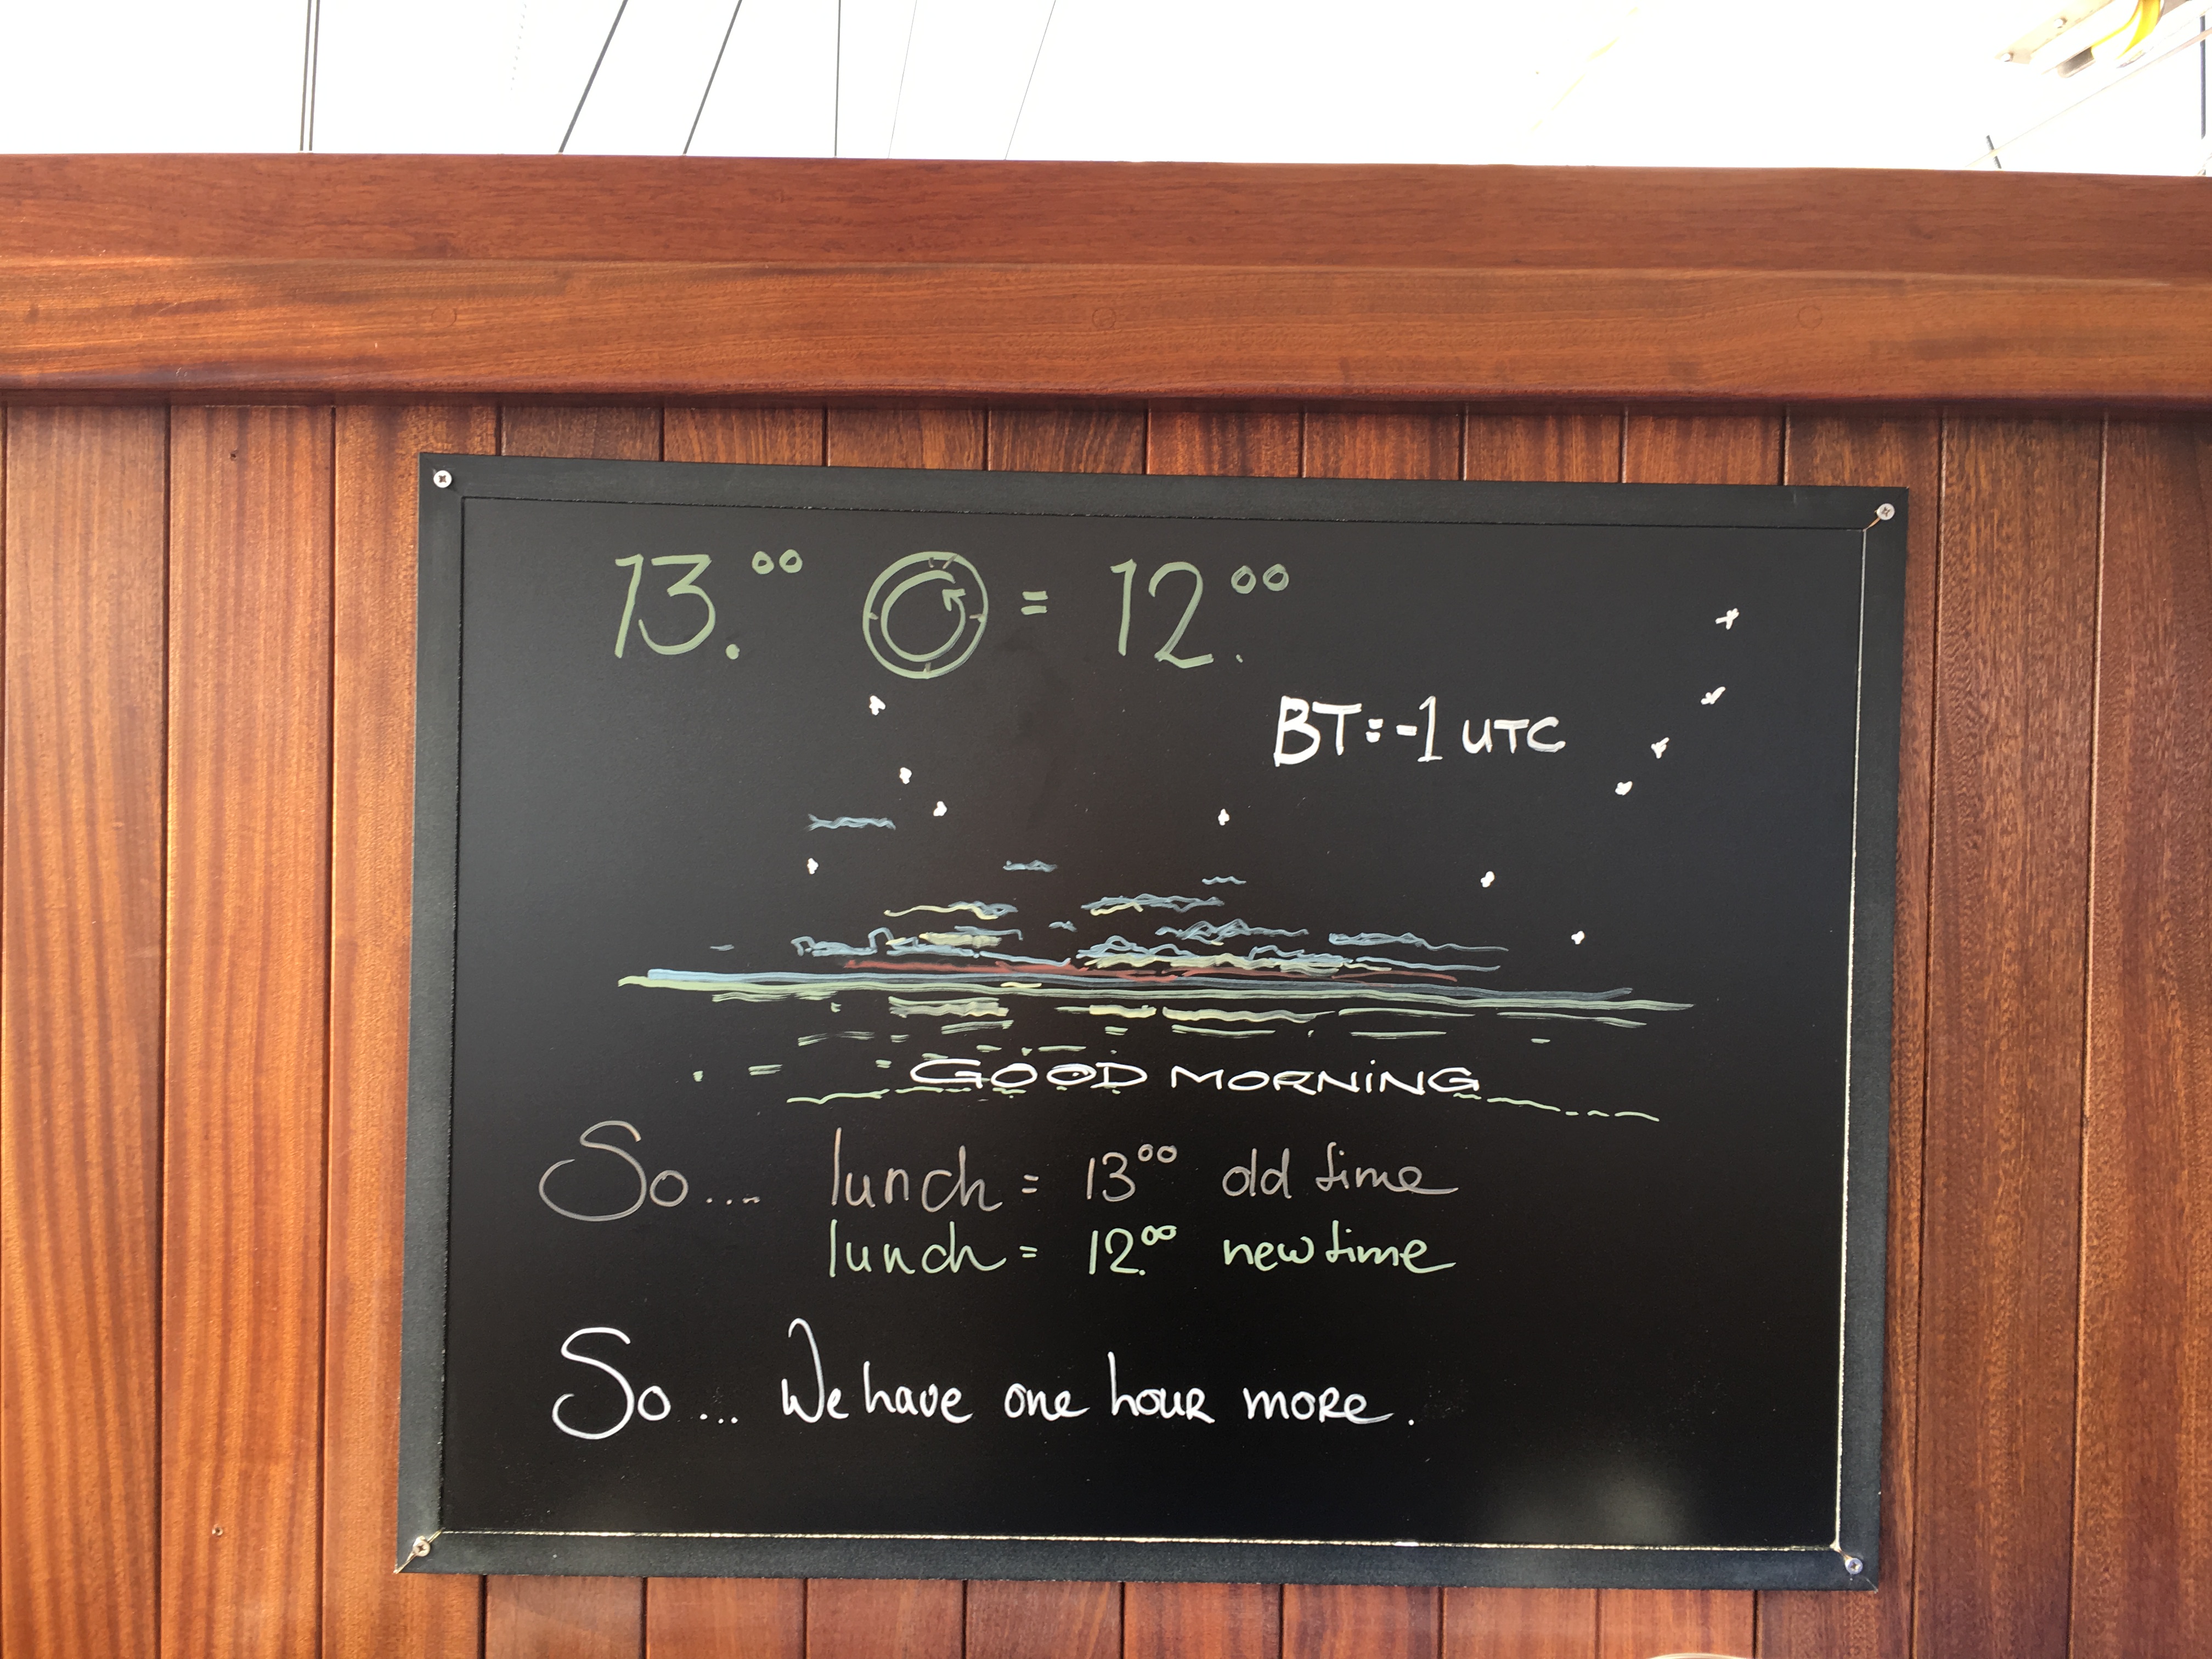 13.⁰⁰ = 12.⁰⁰
BT = -1 UTC
GOOD MORNING
So.... lunch = 13⁰⁰ old time
lunch = 12.⁰⁰ new time
So... We have one hour more.